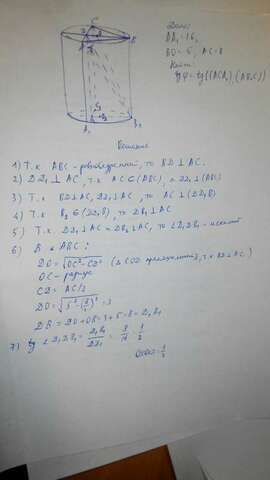 Дано:
DD₁=16,
BO=5, AC=8
Найти:
tgφ = tg((ACA₁),(AB₂C))
Решение
1) Т.к ABC - равнобедренный, то BD⊥AC.
2) DD₁⊥AC, т.к AC⊂(ABC), а DD₁⊥(ABC)
3) Т.к BD⊥AC, DD₁⊥AC, то AC⊥(DD₁B)
4) Т.к B₂∈(DD₁B), то DB₁⊥AC
5) Т.к DD₁⊥AC и DB₁⊥AC, то ∠D₁DB₁ - искомый
6) В △ABC:
DO=√OC²-CD² (△COD прямоугольный, т.к BD⊥AC)
OC - радиус
CD = AC/2
DO=√5²-(8/2)²=3
DB = DO+OB=3+5=8=D₁B₁
7) tg∠D₁DB₁ = D₁B₁/DD₁ = 8/16 = 1/2
Ответ: 1/2